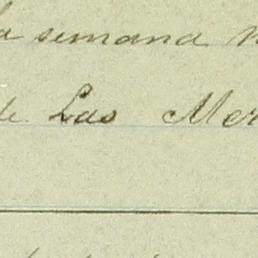 la semana
de Las Mer